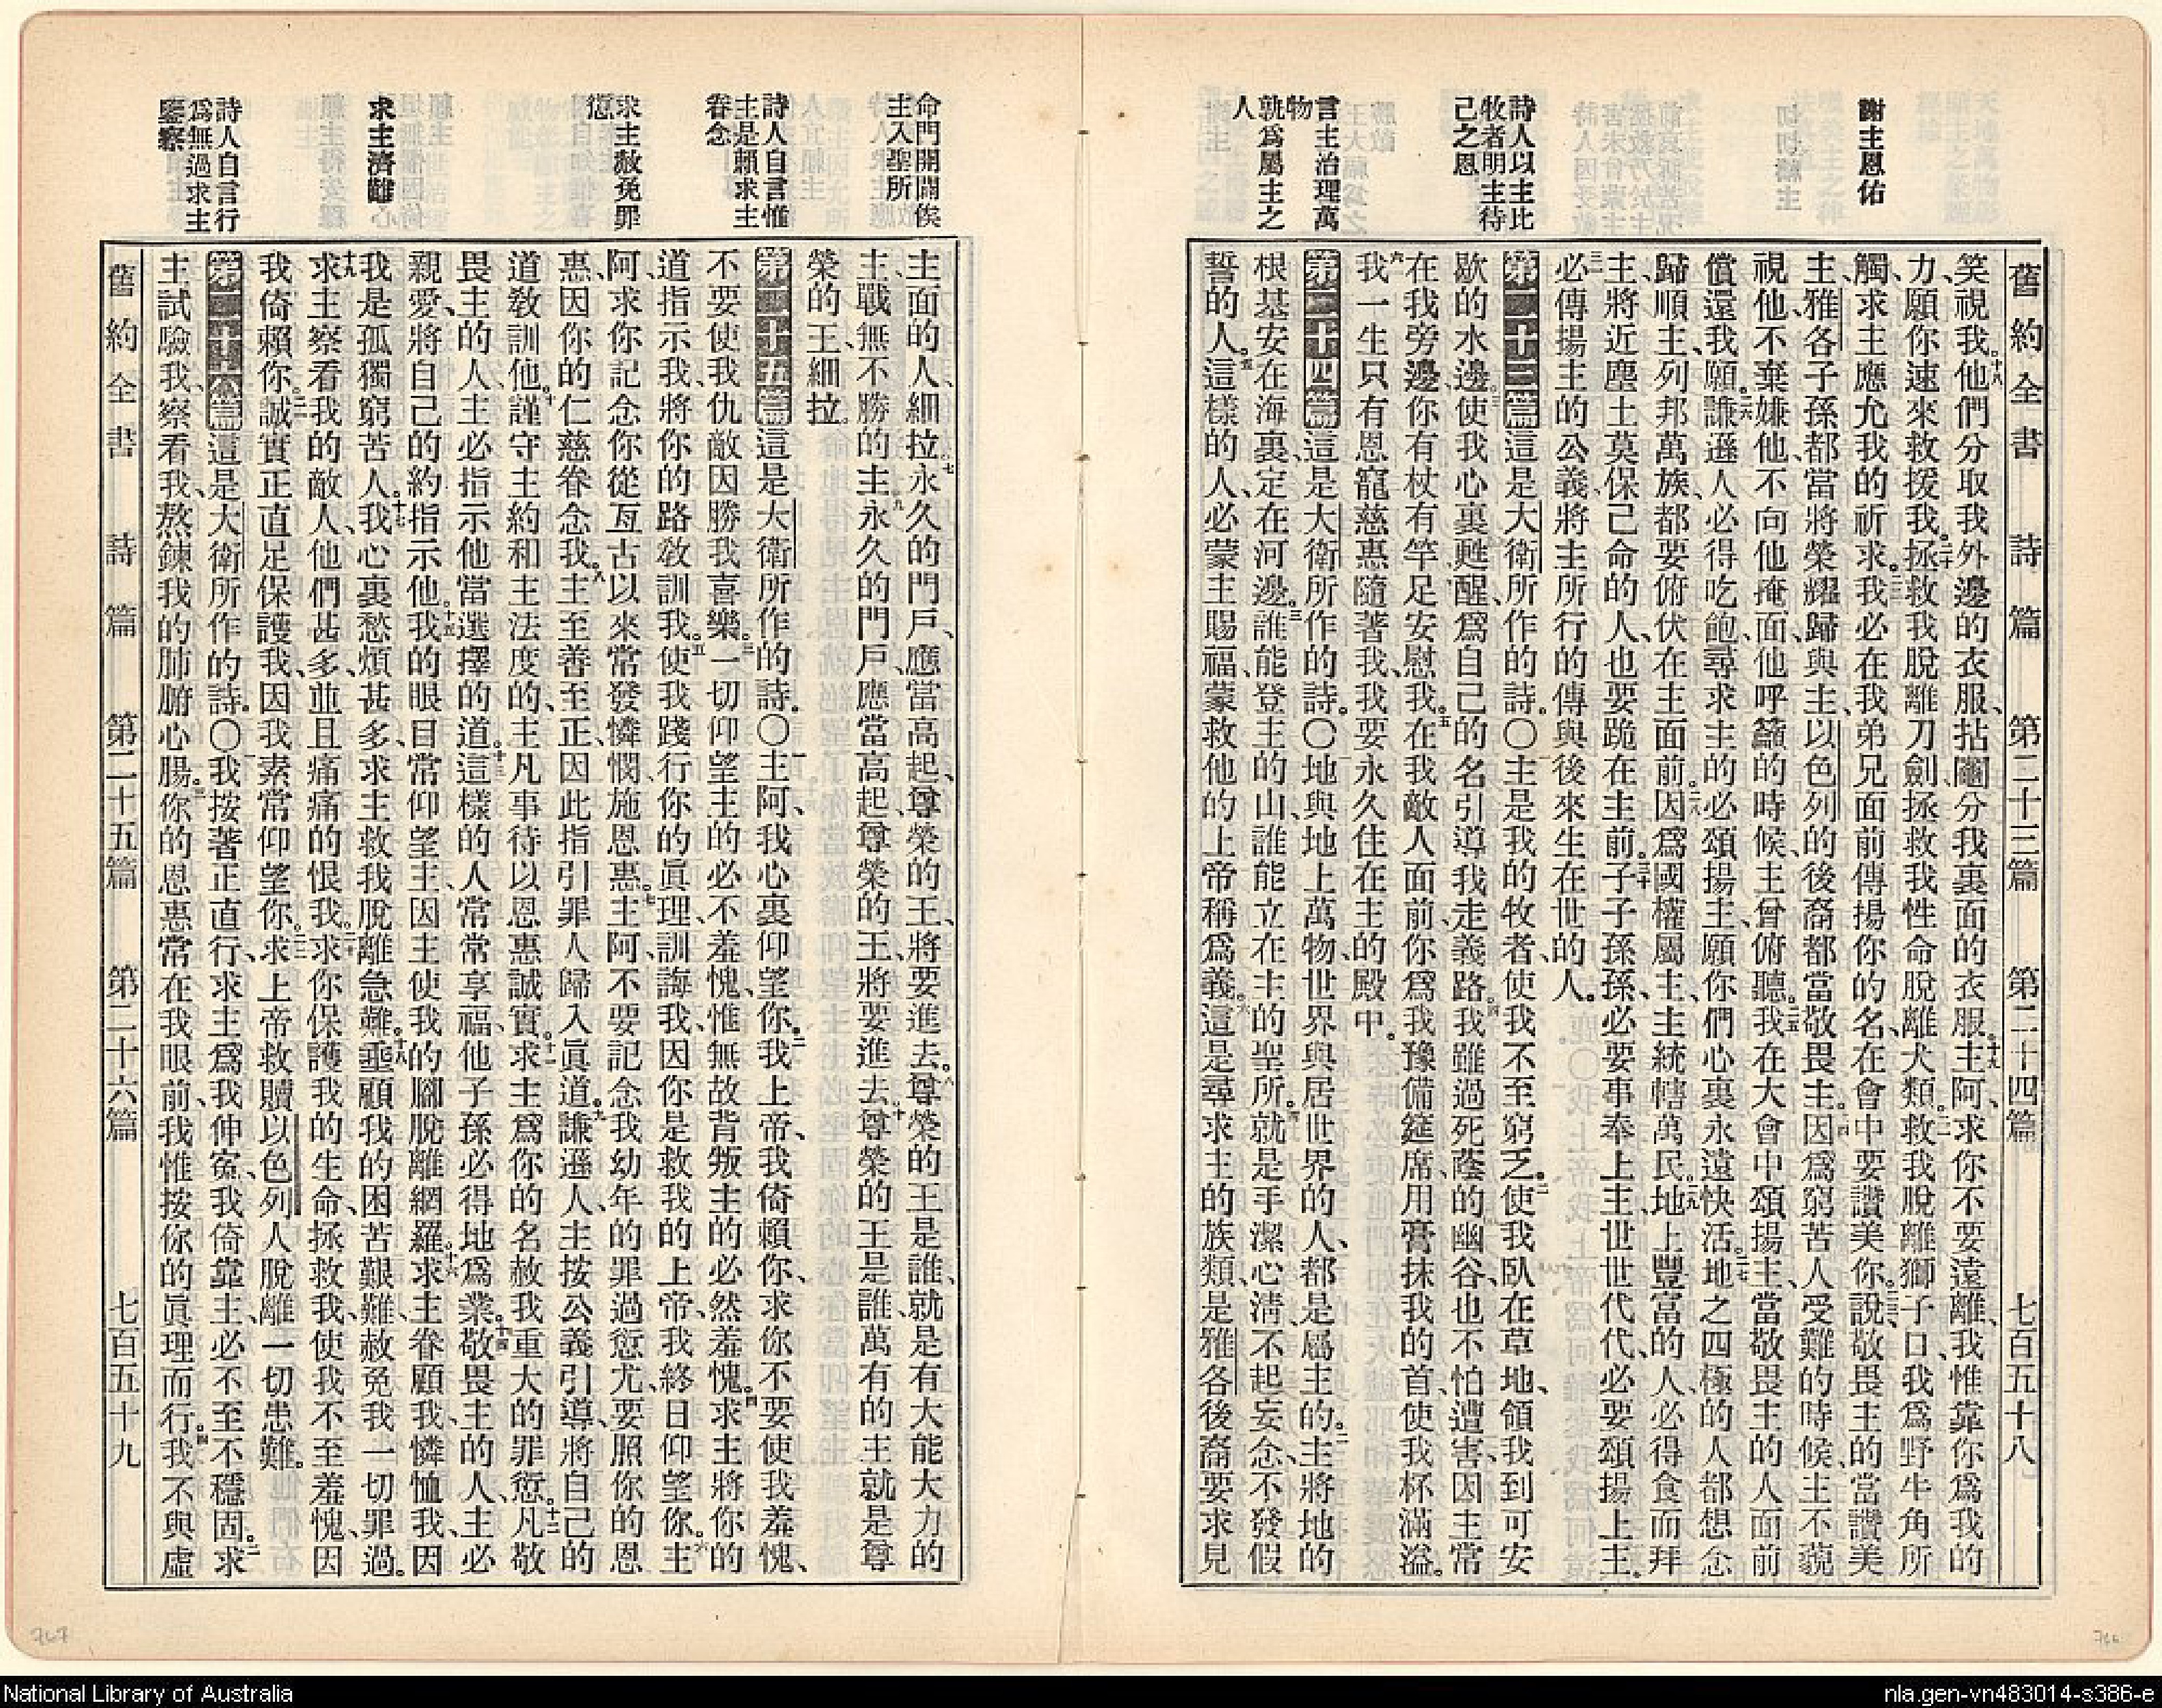 舊約全書 詩篇 第二十三篇 第二十四篇 七百五十八
謝主恩佑
詩人以主比
牧者明主待
己之恩
言主治理萬
物
孰爲屬主之
人
笑視我。十八他們分取我外邊的衣服、拈鬮分我裏面的衣服。十九主阿、求你不要遠離、我惟靠你爲我的
力、願你速來救援我。二十拯救我脫離刀劍、拯救我性命脫離犬類。二一救我脫離獅子口、我爲野牛角所
觸、求主應允我的祈求。二二我必在我弟兄面前傳揚你的名、在會中要讚美你。二三說敬畏主的當讚美
主、雅各子孫都當將榮耀歸與主、以色列的後裔都當敬畏主。二四因爲窮苦人受難的時候、主不藐
視他不棄嫌他、不向他掩面、他呼籲的時候、主曾俯聽。二五我在大會中頌揚主、當敬畏主的人面前
償還我願。二六謙遜人必得吃飽、尋求主的必頌揚主、願你們心裏永遠快活。二七地之四極的人都想念
歸順主、列邦萬族、都要俯伏在主面前。二八因爲國權屬主、主統轄萬民。二九地上豐富的人、必得食而拜
主、將近塵土莫保己命的人、也要跪在主前。三十子子孫孫、必要事奉上主、世世代代、必要頌揚上主。
三一必傳揚主的公義、將主所行的傳與後來生在世的人。
第二十三篇 這是大衛所作的詩。〇一主是我的牧者、使我不至窮乏。二使我臥在草地、領我到可安
歇的水邊。三使我心裏甦醒、爲自己的名引導我走義路。四我雖過死蔭的幽谷、也不怕遭害、因主常
在我旁邊、你有杖有竿、足安慰我。五在我敵人面前、你爲我豫備筵席、用膏抹我的首、使我杯滿溢。
六我一生只有恩寵慈惠隨著我、我要永久住在主的殿中。
第二十四篇 這是大衛所作的詩。〇一地與地上萬物、世界與居世界的人、都是屬主的。二主將地的
根基安在海裏、定在河邊。三誰能登主的山、誰能立在主的聖所。四就是手潔心淸、不起妄念、不發假
誓的人。五這樣的人、必蒙主賜福、蒙救他的上帝稱爲義。六這是尋求主的族類、是雅各後裔要求見
命門開闢俟
主入聖所
詩人自言惟
主是賴求主
眷念
求主赦免罪
愆
求主濟難
詩人自言行
爲無過求主
鑒察
主面的人、細拉。七永久的門戶、應當高起、尊榮的王、將要進去。八尊榮的王是誰、就是有大能大力的
主、戰無不勝的主。九永久的門戶、應當高起、尊榮的王、將要進去。十尊榮的王是誰、萬有的主就是尊
榮的王、細拉。
第二十五篇 這是大衛所作的詩。〇一主阿、我心裏仰望你。二我上帝、我倚賴你、求你不要使我羞愧、
不要使我仇敵因勝我喜樂。三一切仰望主的必不羞愧、惟無故背叛主的必然羞愧。四求主將你的
道指示我、將你的路教訓我。五使我踐行你的眞理、訓誨我、因你是救我的上帝、我終日仰望你。六主
阿、求你記念你從亙古以來常發憐憫施恩惠。七主阿、不要記念我幼年的罪過愆尤、要照你的恩
惠、因你的仁慈眷念我。八主至善至正、因此指引罪人歸入眞道。九謙遜人、主按公義引導、將自己的
道教訓他。十謹守主約和主法度的、主凡事待以恩惠誠實。十一求主爲你的名赦我重大的罪愆。十二凡敬
畏主的人、主必指示他當選擇的道。十三這樣的人常常享福、他子孫必得地爲業。十四敬畏主的人、主必
親愛、將自己的約指示他。十五我的眼目常仰望主、因主使我的腳脫離網羅。十六求主眷顧我憐恤我、因
我是孤獨窮苦人。十七我心裏愁煩甚多、求主救我脫離急難。十八垂顧我的困苦艱難、赦免我一切罪過。
十九求主察看我的敵人、他們甚多、並且痛痛的恨我。二十求你保護我的生命、拯救我、使我不至羞愧、因
我倚賴你。二一誠實正直足保護我、因我素常仰望你。二二求上帝救贖以色列人脫離一切患難。
第二十六篇 這是大衛所作的詩。〇一我按著正直行、求主爲我伸寃、我倚靠主、必不至不穩固。二求
主試驗我、察看我、熬鍊我的肺腑心腸。三你的恩惠常在我眼前、我惟按你的眞理而行。四我不與虛
舊約全書 詩篇 第二十五篇 第二十六篇 七百五十九
767
766
National Library of Australia
nla.gen-vn483014-s386-e